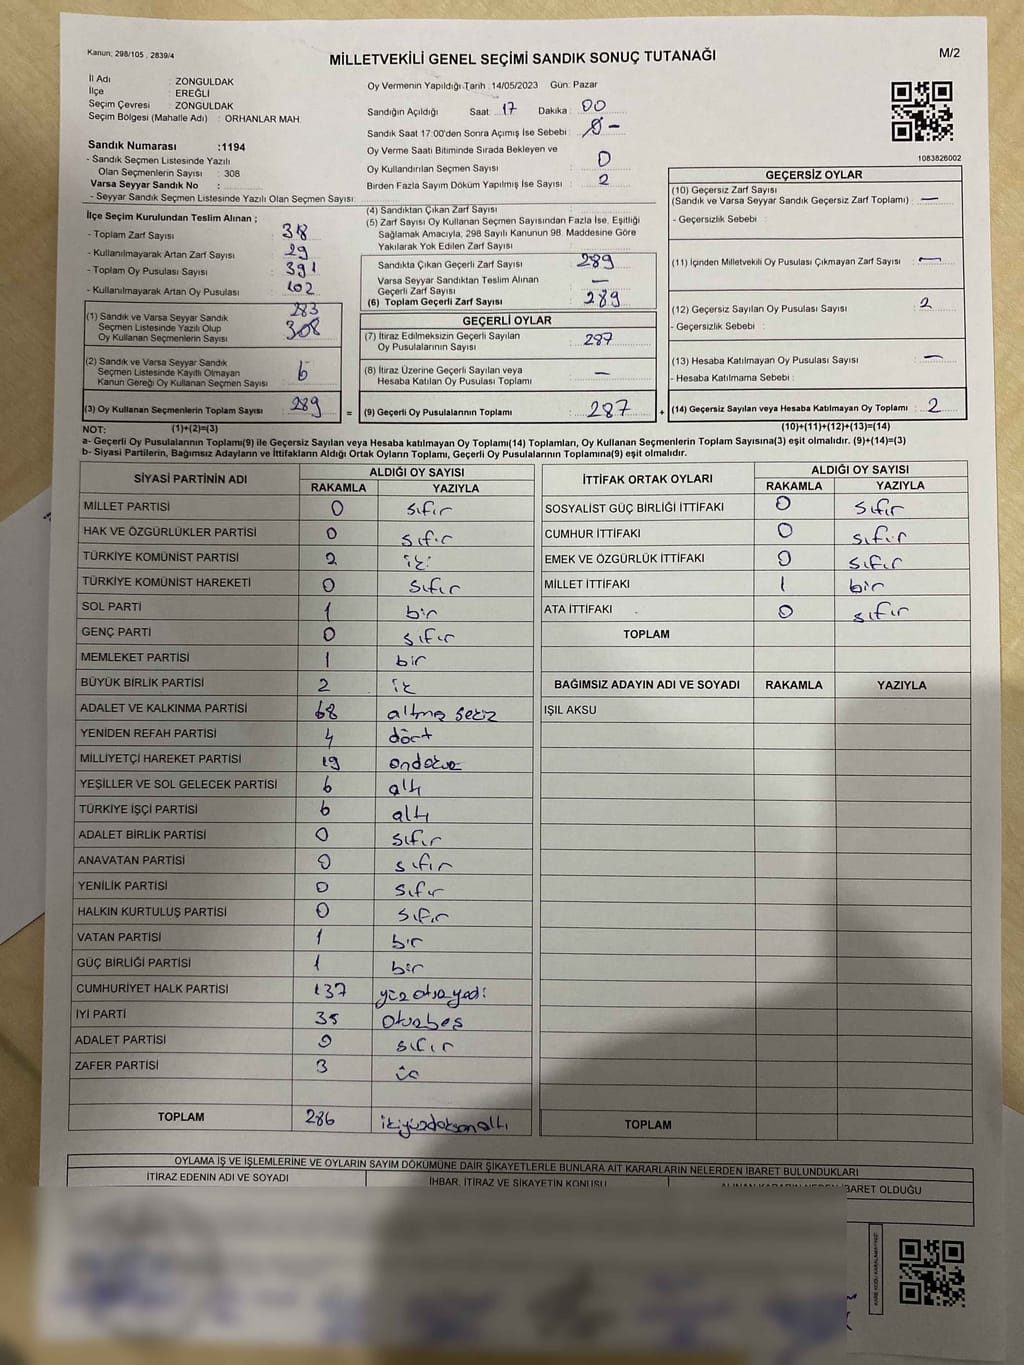 Kanun; 298/105 , 2839/4
MİLLETVEKİLİ GENEL SEÇİMİ SANDIK SONUÇ TUTANAĞI
M/2
İl Adı : ZONGULDAK
İlçe : EREĞLİ
Seçim Çevresi : ZONGULDAK
Seçim Bölgesi (Mahalle Adı) : ORHANLAR MAH.
Sandık Numarası :1194
- Sandık Seçmen Listesinde Yazılı
Olan Seçmenlerin Sayısı : 308
Varsa Seyyar Sandık No :
- Seyyar Sandık Seçmen Listesinde Yazılı Olan Seçmen Sayısı:
Oy Vermenin Yapıldığı Tarih :14/05/2023 Gün: Pazar
Sandığın Açıldığı Saat : 17 Dakika : 00
Sandık Saat 17:00'den Sonra Açımış İse Sebebi :
Oy Verme Saati Bitiminde Sırada Bekleyen ve
Oy Kullandırılan Seçmen Sayısı : 0
Birden Fazla Sayım Döküm Yapılmış İse Sayısı : 2
1083826002
İlçe Seçim Kurulundan Teslim Alınan ;
- Toplam Zarf Sayısı : 318
- Kullanılmayarak Artan Zarf Sayısı : 29
- Toplam Oy Pusulası Sayısı : 391
- Kullanılmayarak Artan Oy Pusulası : 102
283
(1) Sandık ve Varsa Seyyar Sandık
Seçmen Listesinde Yazılı Olup
Oy Kullanan Seçmenlerin Sayısı : 308
(2) Sandık ve Varsa Seyyar Sandık
Seçmen Listesinde Kayıtlı Olmayan
Kanun Gereği Oy Kullanan Seçmen Sayısı : 6
(3) Oy Kullanan Seçmenlerin Toplam Sayısı : 289 =
(4) Sandıktan Çıkan Zarf Sayısı :
(5) Zarf Sayısı Oy Kullanan Seçmen Sayısından Fazla İse, Eşitliği
Sağlamak Amacıyla, 298 Sayılı Kanunun 98. Maddesine Göre
Yakılarak Yok Edilen Zarf Sayısı :
Sandıkta Çıkan Geçerli Zarf Sayısı : 289
Varsa Seyyar Sandıktan Teslim Alınan
Geçerli Zarf Sayısı : —
(6) Toplam Geçerli Zarf Sayısı : 289
GEÇERLİ OYLAR
(7) İtiraz Edilmeksizin Geçerli Sayılan
Oy Pusulalarının Sayısı : 287
(8) İtiraz Üzerine Geçerli Sayılan veya
Hesaba Katılan Oy Pusulası Toplamı : —
(9) Geçerli Oy Pusulalarının Toplamı : 287 +
GEÇERSİZ OYLAR
(10) Geçersiz Zarf Sayısı
(Sandık ve Varsa Seyyar Sandık Geçersiz Zarf Toplamı) : —
- Geçersizlik Sebebi :
(11) İçinden Milletvekili Oy Pusulası Çıkmayan Zarf Sayısı : —
(12) Geçersiz Sayılan Oy Pusulası Sayısı : 2
- Geçersizlik Sebebi :
(13) Hesaba Katılmayan Oy Pusulası Sayısı : —
- Hesaba Katılmama Sebebi :
(14) Geçersiz Sayılan veya Hesaba Katılmayan Oy Toplamı : 2
NOT: (1)+(2)=(3) (10)+(11)+(12)+(13)=(14)
a- Geçerli Oy Pusulalarının Toplamı(9) ile Geçersiz Sayılan veya Hesaba katılmayan Oy Toplamı(14) Toplamları, Oy Kullanan Seçmenlerin Toplam Sayısına(3) eşit olmalıdır. (9)+(14)=(3)
b- Siyasi Partilerin, Bağımsız Adayların ve İttifakların Aldığı Ortak Oyların Toplamı, Geçerli Oy Pusulalarının Toplamına(9) eşit olmalıdır.
SİYASİ PARTİNİN ADI ALDIĞI OY SAYISI
RAKAMLA YAZIYLA
MİLLET PARTİSİ 0 sıfır
HAK VE ÖZGÜRLÜKLER PARTİSİ 0 sıfır
TÜRKİYE KOMÜNİST PARTİSİ 2 iki
TÜRKİYE KOMÜNİST HAREKETİ 0 sıfır
SOL PARTİ 1 bir
GENÇ PARTİ 0 sıfır
MEMLEKET PARTİSİ 1 bir
BÜYÜK BİRLİK PARTİSİ 2
ADALET VE KALKINMA PARTİSİ 68 altmış sekiz
YENİDEN REFAH PARTİSİ 4 dört
MİLLİYETÇİ HAREKET PARTİSİ 19 ondokuz
YEŞİLLER VE SOL GELECEK PARTİSİ 6 altı
TÜRKİYE İŞÇİ PARTİSİ 6 altı
ADALET BİRLİK PARTİSİ 0 sıfır
ANAVATAN PARTİSİ 0 sıfır
YENİLİK PARTİSİ 0 sıfır
HALKIN KURTULUŞ PARTİSİ 0 sıfır
VATAN PARTİSİ 1 bir
GÜÇ BİRLİĞİ PARTİSİ 1 bir
CUMHURİYET HALK PARTİSİ 137 yüz otuz yedi
İYİ PARTİ 35 otuzbeş
ADALET PARTİSİ 0 sıfır
ZAFER PARTİSİ 3 üç
TOPLAM 286 ikiyüzdoksanaltı
İTTİFAK ORTAK OYLARI ALDIĞI OY SAYISI
RAKAMLA YAZIYLA
SOSYALİST GÜÇ BİRLİĞİ İTTİFAKI 0 sıfır
CUMHUR İTTİFAKI 0 sıfır
EMEK VE ÖZGÜRLÜK İTTİFAKI 0 sıfır
MİLLET İTTİFAKI 1 bir
ATA İTTİFAKI 0 sıfır
TOPLAM
BAĞIMSIZ ADAYIN ADI VE SOYADI RAKAMLA YAZIYLA
IŞIL AKSU
TOPLAM
OYLAMA İŞ VE İŞLEMLERİNE VE OYLARIN SAYIM DÖKÜMÜNE DAİR ŞİKAYETLERLE BUNLARA AİT KARARLARIN NELERDEN İBARET BULUNDUKLARI
İTİRAZ EDENİN ADI VE SOYADI İHBAR, İTİRAZ VE ŞİKAYETİN KONUSU ALINAN KARARIN NEDEN İBARET OLDUĞU